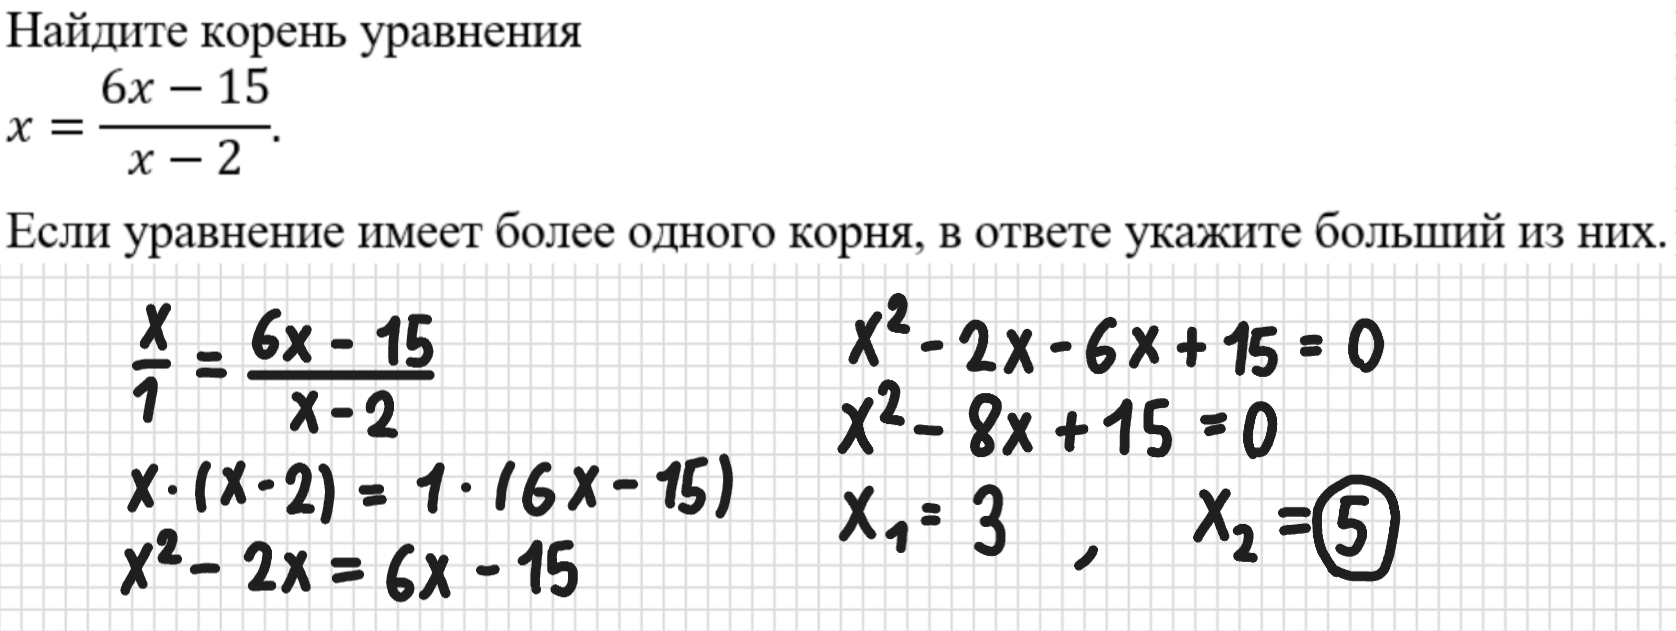 Найдите корень уравнения
x = \frac{6x − 15}{x − 2}.
Если уравнение имеет более одного корня, в ответе укажите больший из них.
\frac{x}{1} = \frac{6x - 15}{x - 2}
x · (x - 2) = 1 · (6x - 15)
x² - 2x = 6x - 15
x² - 2x - 6x + 15 = 0
x² - 8x + 15 = 0
x₁ = 3 , x₂ = 5